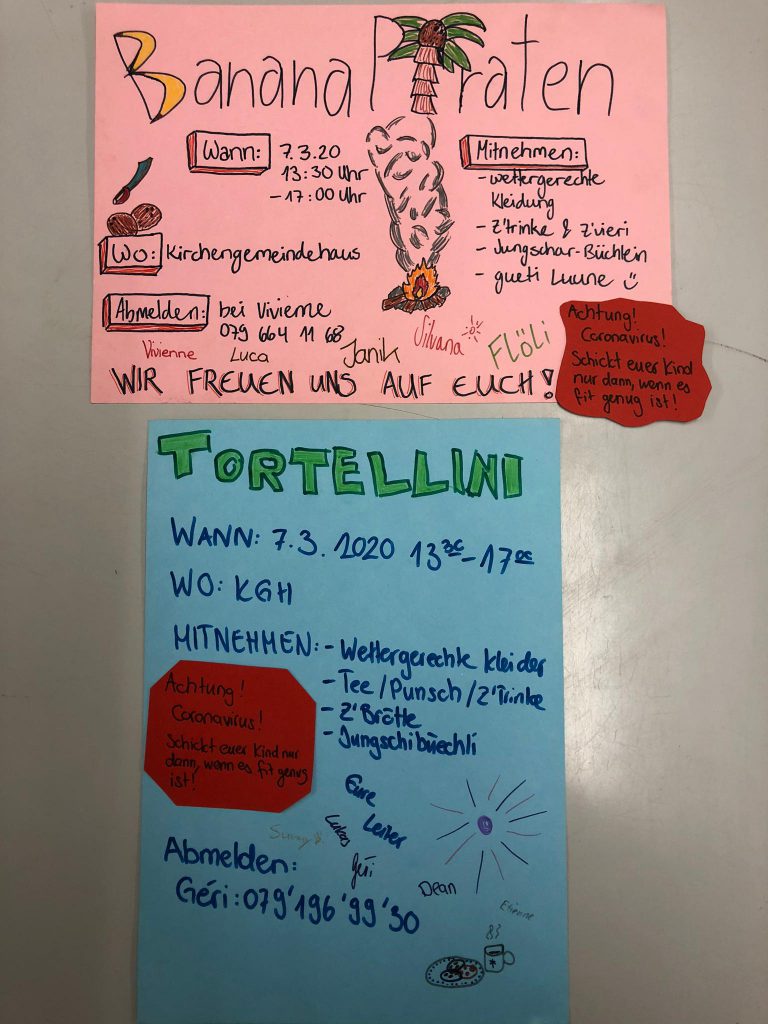 Banana Piraten
Wann: 7.3.20
13:30 Uhr
- 17:00 Uhr
Wo: Kirchengemeindehaus
Abmelden: bei Vivienne
079 664 11 68
Mitnehmen:
- wettergerechte
Kleidung
- Z'trinke & Z'vieri
- Jungschar-Büchlein
- gueti Luune
Vivienne Luca Janik Silvana Flöli
WIR FREUEN UNS AUF EUCH!
Achtung!
Coronavirus!
Schickt euer Kind
nur dann, wenn es
fit genug ist!
TORTELLINI
WANN: 7.3. 2020 1330-1700
WO: KGH
MITNEHMEN: - Wettergerechte Kleider
- Tee/Punsch/Z'Trinke
- Z'Brötle
- Jungschibüechli
Achtung!
Coronavirus!
Schickt euer Kind nur
dann, wenn es fit genug
ist!
Eure
Leiter
Lukas
Géri
Dean
Etienne
Abmelden:
Géri: 079'196'99'30